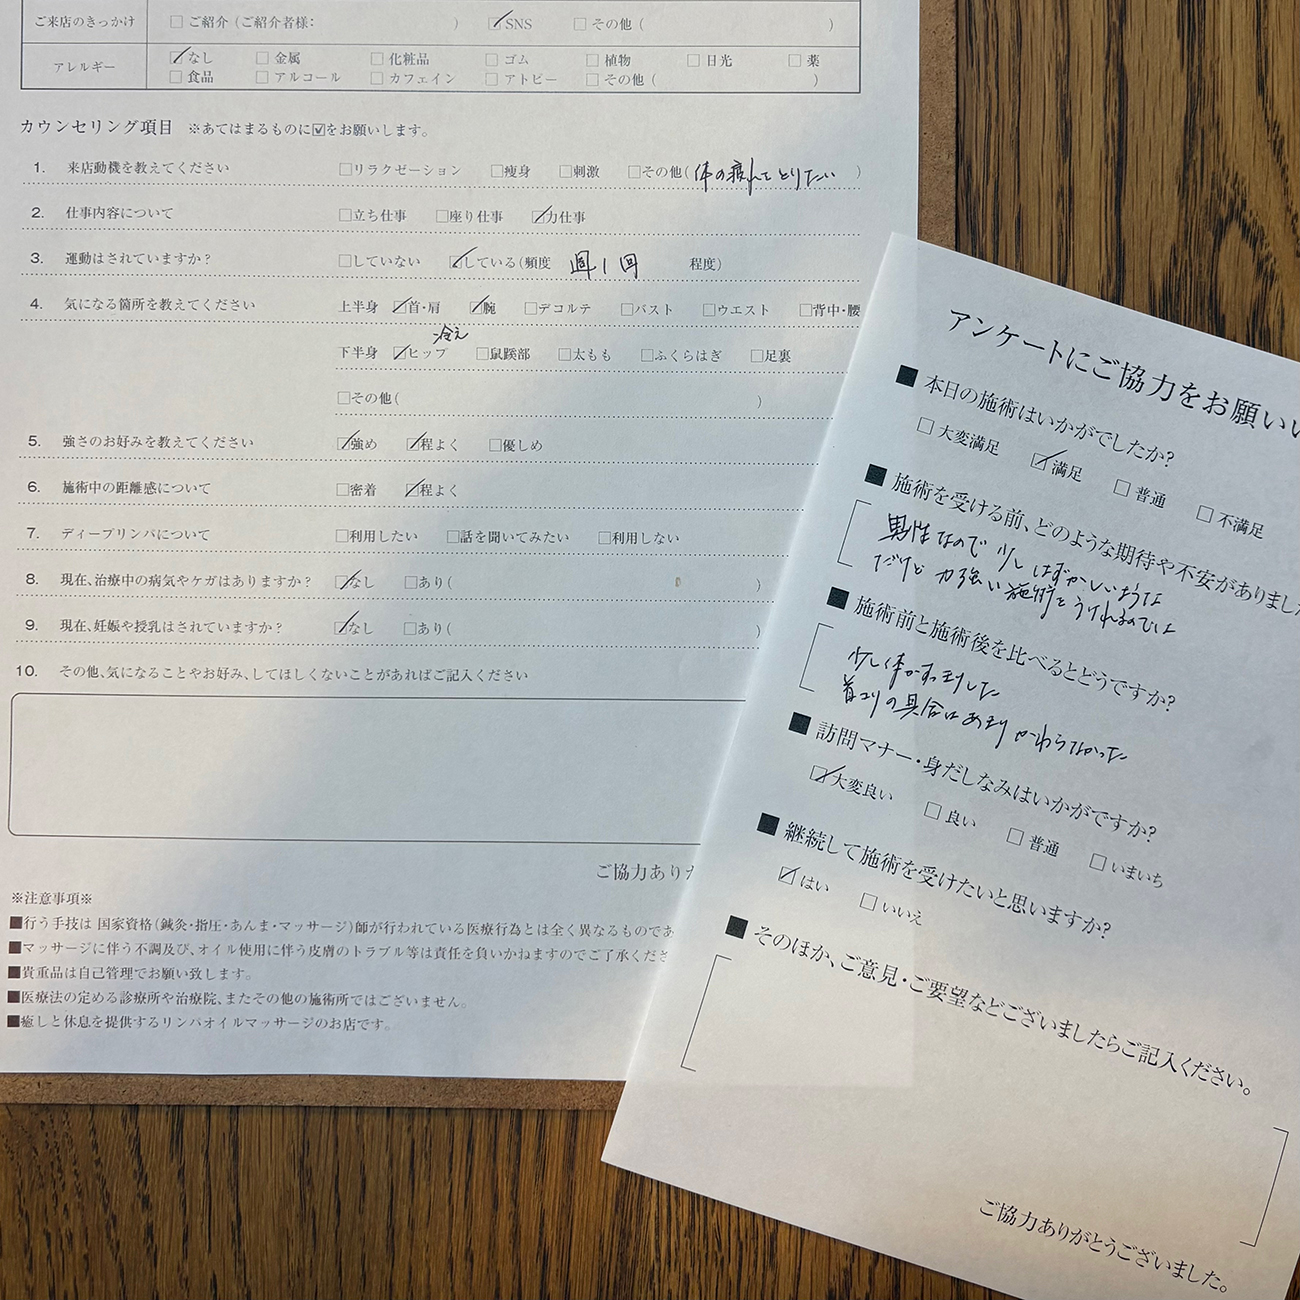 ご来店のきっかけ □ご紹介（ご紹介者様: ） ☑SNS □その他（ ）
アレルギー ☑なし □金属 □化粧品 □ゴム □植物 □日光 □薬
□食品 □アルコール □カフェイン □アトピー □その他（ ）
カウンセリング項目 ※あてはまるものに☑をお願いします。
1. 来店動機を教えてください □リラクゼーション □痩身 □刺激 □その他（体の疲れをとりたい ）
2. 仕事内容について □立ち仕事 □座り仕事 ☑力仕事
3. 運動はされていますか？ □していない ☑している（頻度 週1回 程度）
4. 気になる箇所を教えてください 上半身 ☑首・肩 ☑腕 □デコルテ □バスト □ウエスト □背中・腰
冷え
下半身 ☑ヒップ □鼠蹊部 □太もも □ふくらはぎ □足裏
□その他（ ）
5. 強さのお好みを教えてください ☑強め ☑程よく □優しめ
6. 施術中の距離感について □密着 ☑程よく
7. ディープリンパについて □利用したい □話を聞いてみたい □利用しない
8. 現在、治療中の病気やケガはありますか？ ☑なし □あり（ ）
9. 現在、妊娠や授乳はされていますか？ ☑なし □あり（ ）
10. その他、気になることやお好み、してほしくないことがあればご記入ください
ご協力あり
※注意事項※
■行う手技は 国家資格（鍼灸・指圧・あんま・マッサージ）師が行われている医療行為とは全く異なるものであ
■マッサージに伴う不調及び、オイル使用に伴う皮膚のトラブル等は責任を負いかねますのでご了承くださ
■貴重品は自己管理でお願い致します。
■医療法の定める診療所や治療院、またその他の施術所ではございません。
■癒しと休息を提供するリンパオイルマッサージのお店です。
アンケートにご協力をお願いい
■本日の施術はいかがでしたか？
□大変満足 ☑満足 □普通 □不満足
■施術を受ける前、どのような期待や不安がありまし
男性なので 少しはずかしいような
だけど 力強い施術をうけれるのでは
■施術前と施術後を比べるとどうですか？
少し体がすっきりした
首コリの具合はあまり かわらなかった
■訪問マナー・身だしなみはいかがですか？
☑大変良い □良い □普通 □いまいち
■継続して施術を受けたいと思いますか？
☑はい □いいえ
■そのほか、ご意見・ご要望などございましたらご記入ください。
ご協力ありがとうございました。